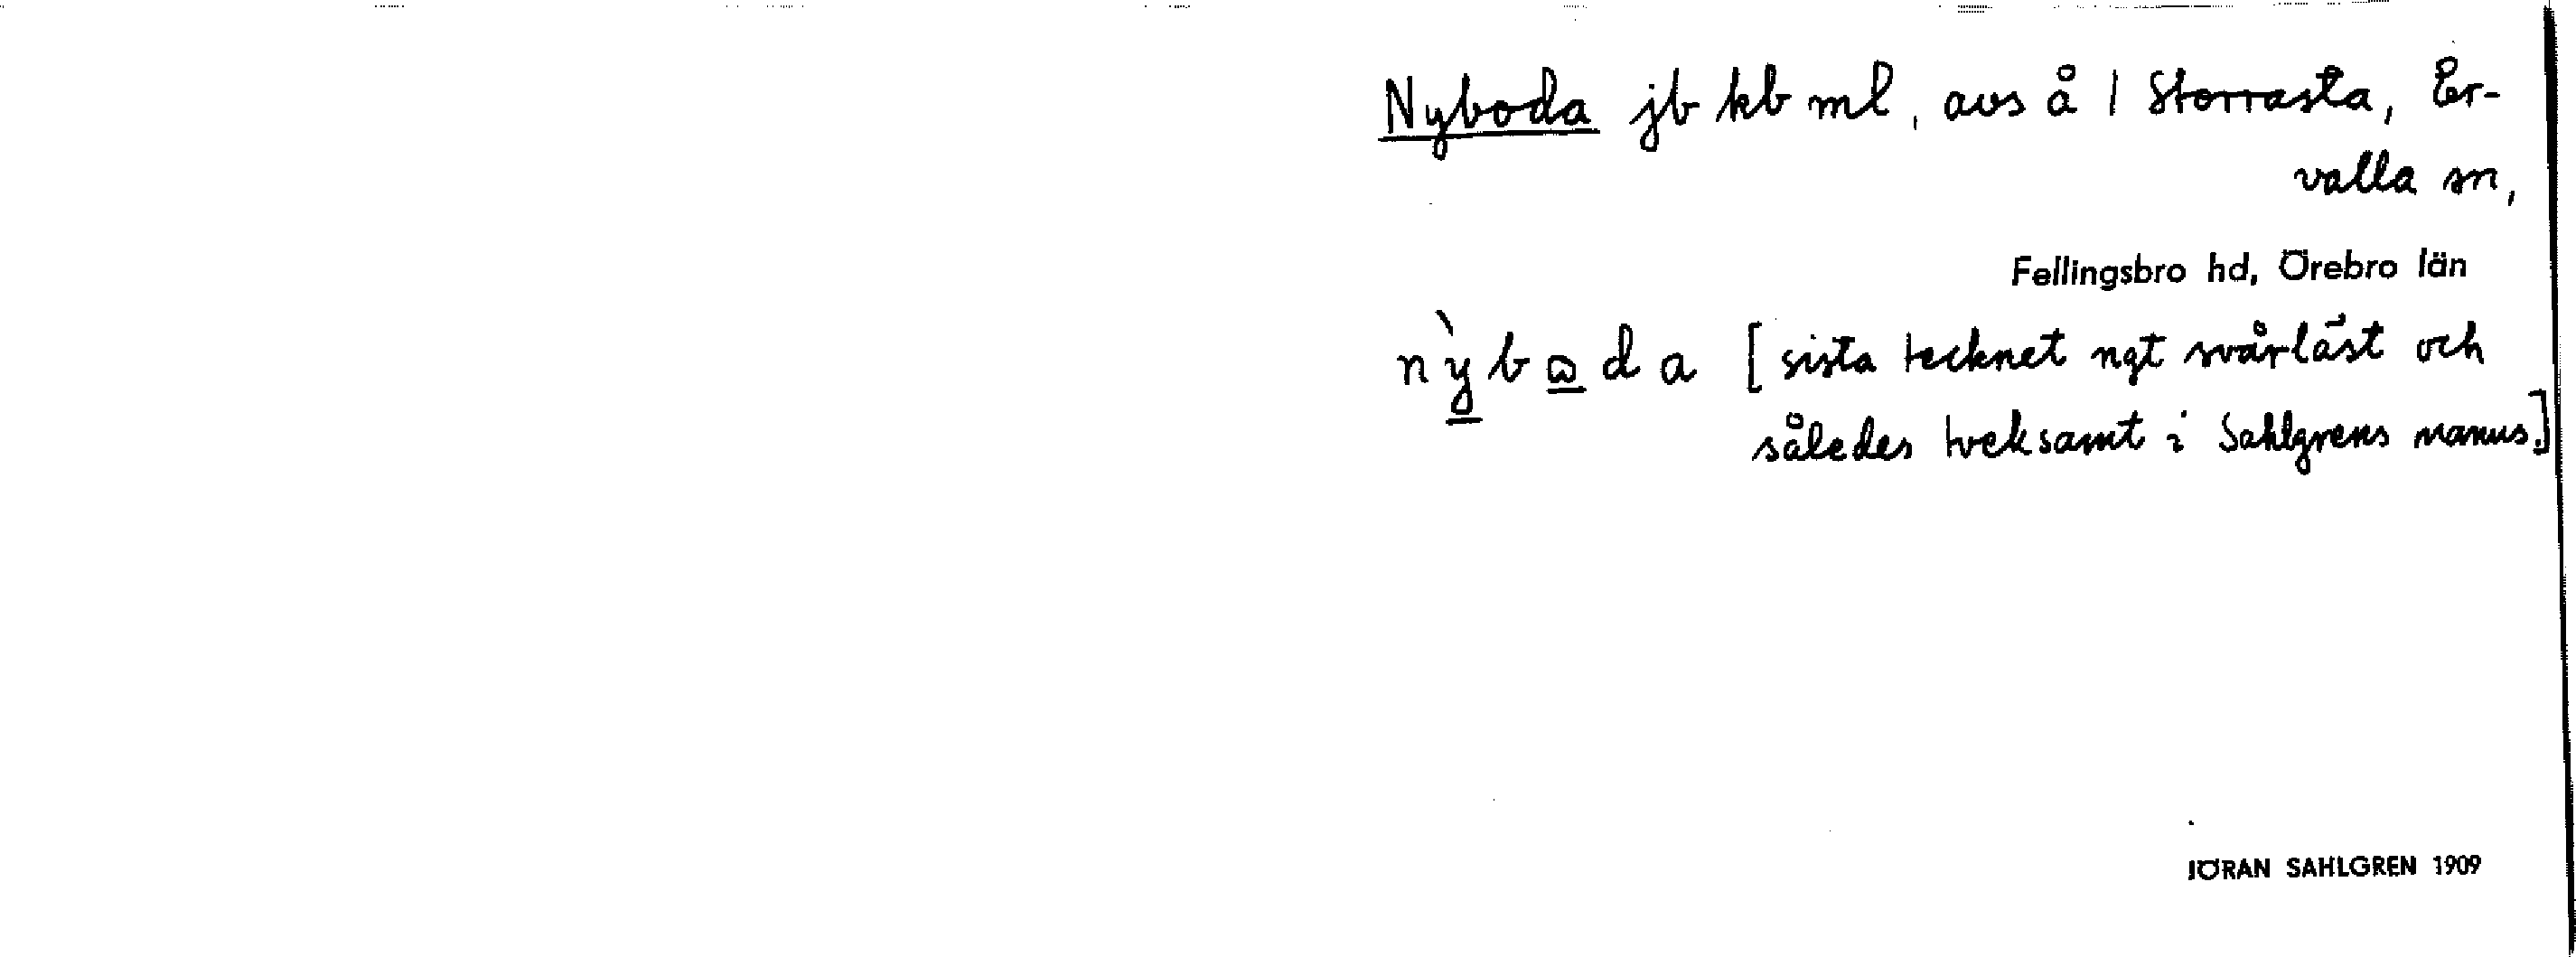 Nyboda jb kb ml, avs å 1 Storrasta, Er-
valla sn,
Fellingsbro hd, Örebro län
nỳ̲bɷ̲da [sista tecknet ngt svårläst och
således tveksamt i Sahlgrens manus.]
JÖRAN SAHLGREN 1909